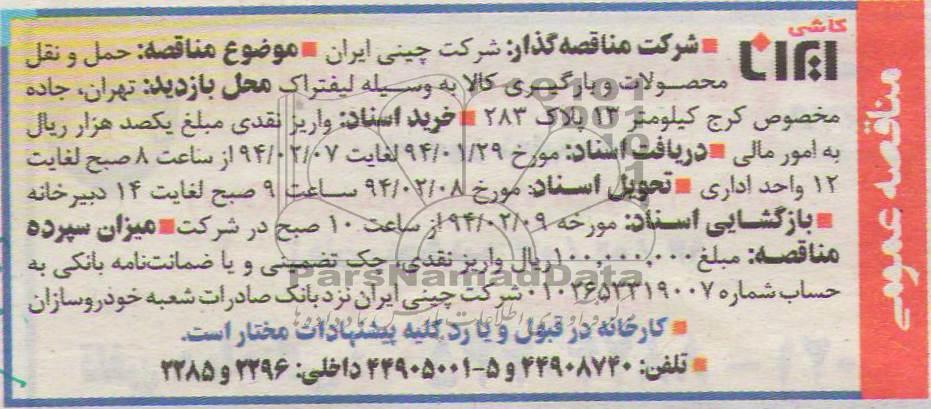 مناقصه عمومی
کاشی
ایرانا
■ شرکت مناقصه‌گذار: شرکت چینی ایران ■ موضوع مناقصه: حمل و نقل
محصولات و بارگیری کالا به وسیله لیفتراک محل بازدید: تهران، جاده
مخصوص کرج کیلومتر ۱۳ پلاک ۲۸۳ ■ خرید اسناد: واریز نقدی مبلغ یکصد هزار ریال
به امور مالی ■ دریافت اسناد: مورخ ۹۴/۰۱/۲۹ لغایت ۹۴/۰۲/۰۷ از ساعت ۸ صبح لغایت
۱۲ واحد اداری ■ تحویل اسناد: مورخ ۹۴/۰۲/۰۸ ساعت ۹ صبح لغایت ۱۴ دبیرخانه
■ بازگشایی اسناد: مورخه ۹۴/۰۲/۰۹ از ساعت ۱۰ صبح در شرکت ■ میزان سپرده
مناقصه: مبلغ ۱۰۰,۰۰۰,۰۰۰ ریال واریز نقدی، چک تضمینی و یا ضمانت‌نامه بانکی به
حساب شماره ۰۱۰۲۶۵۳۳۱۹۰۰۷ شرکت چینی ایران نزد بانک صادرات شعبه خودروسازان
■ کارخانه در قبول و یا رد کلیه پیشنهادات مختار است.
■ تلفن: ۴۴۹۰۸۷۴۰ و ۵-۴۴۹۰۵۰۰۱ داخلی: ۲۲۹۶ و ۲۲۸۵
ParsNamadData